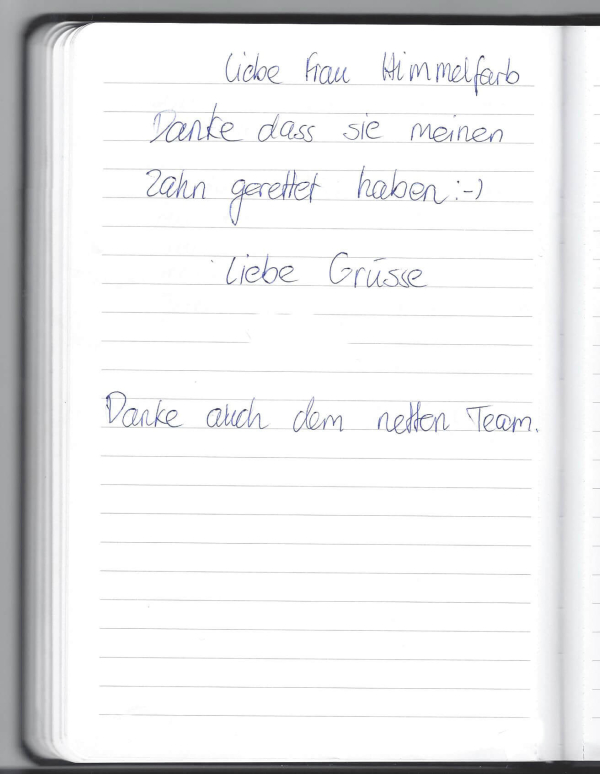 Liebe Frau Himmelfarb
Danke dass sie meinen
Zahn gerettet haben :-)
Liebe Grüsse
Danke auch dem netten Team.